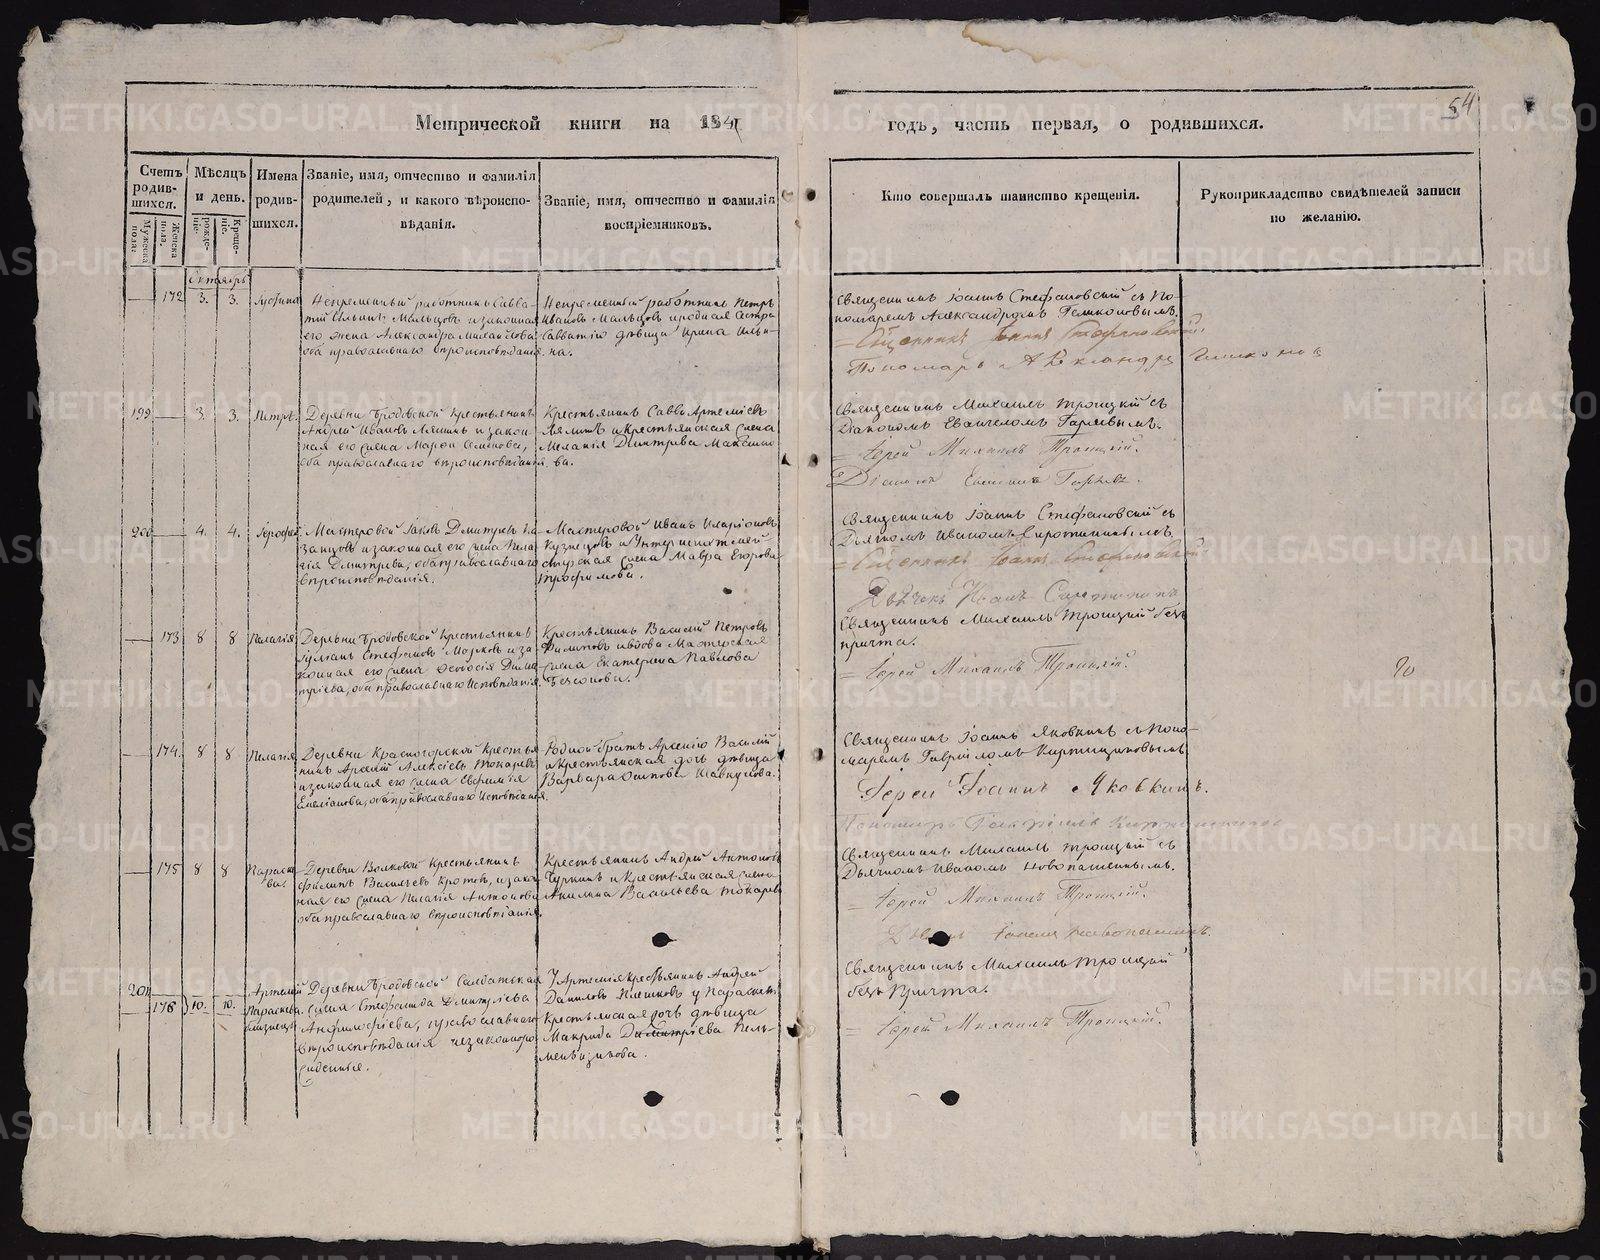 54
Метрической книги на 1841 годъ, часть первая, о родившихся.
Счетъ родив-шихся.
Мужеска пола.
Женска пола.
Мѣсяцъ и день.
рожде-ніе.
Креще-ніе.
Имена родив-шихся.
Званіе, имя, отчество и фамилія родителей, и какого вѣроиспо-вѣданія.
Званіе, имя, отчество и фамилія воспріемниковъ.
Кто совершалъ таинство крещенія.
Рукоприкладство свидѣтелей записи по желанію.
Октябрь
172 3. 3.
Непременный работникъ Савва-
тій Ильинъ Мальцовъ и законная
его жена Александра Михайлова
оба православнаго вѣроисповѣданія.
Непременный работникъ Петръ
Ивановъ Мальцовъ и родная сестра
Савватію дѣвица Ирина Ильи-
на.
Священникъ Іоаннъ Стефановскій съ По-
номаремъ Александромъ Геликоновымъ.
Священникъ Іоаннъ Стефановскій
Пономарь Александръ Геликоновъ
199 3. 3. Петръ.
Деревни Бродовской Крестьянинъ
Андрей Ивановъ Лялинъ и закон-
ная его жена Марфа Семенова,
оба православнаго вѣроисповѣданія.
Крестьянинъ Савва Артеміевъ
Лялинъ и крестьянская жена
Меланія Дмитріева Максимо-
ва.
Священникъ Михаилъ Троицкій съ
Діакономъ Евангеломъ Гаряевымъ.
Іерей Михаилъ Троицкій.
Діаконъ
200 4. 4. Іерофей
Мастеровой Іаковъ Дмитріевъ Ка-
занцовъ и законная его жена Пела-
гія Дмитріева, оба православнаго
вѣроисповѣданія.
Мастеровой Иванъ Иларіоновъ
Кузнецовъ и Унтеръшихтмей-
стерская жена Мавра Егорова
Трофимова.
Священникъ Іоаннъ Стефановскій съ
Дьячкомъ Иваномъ Сиротинымъ.
Священникъ Іоаннъ Стефановскій
Дьячекъ Иванъ
173 8 8 Пелагія
Деревни Бродовской Крестьянинъ
Стефановъ Марковъ и за-
конная его жена Феодосія Дими-
тріева, оба православнаго исповѣданія.
Крестьянинъ Василій Петровъ
Филиповъ и вдова Мастерская
жена Екатерина Павлова
Безсонова.
Священникъ Михаилъ Троицкій безъ
причта.
Іерей Михаилъ Троицкій.
174. 8 8 Пелагія
Деревни Красногорской Крестья-
нинъ Арсеній Алексіевъ Токаревъ
и законная его жена Евфимія
Емеліанова, оба православнаго исповѣданія.
Родной братъ Арсенію Василій
и крестьянская дочь дѣвица
Варвара Осипова Шавкунова.
Священникъ Іоаннъ Яковкинъ съ Поно-
маремъ Гавріиломъ
Іерей Іоаннъ Яковкинъ.
Пономарь Гавріилъ
175 8 8 Параске-
ва.
Деревни Волковой Крестьянинъ
Филипъ Васильевъ Кротовъ, и закон-
ная его жена Пелагія Антонова
оба православнаго вѣроисповѣданія.
Крестьянинъ Андрей Антоновъ
Чуркинъ и крестьянская жена
Акилина Васильева Токарева
Священникъ Михаилъ Троицкій съ
Дьячкомъ Иваномъ Новопашеннымъ.
Іерей Михаилъ Троицкій.
201 176 10. 10. Артемій
Параскева
близнецы
Деревни Бродовской Салдатская
жена Степанида Димитріева
православнаго
вѣроисповѣданія незаконноро-
жденныя.
У Артемія крестьянинъ Андрей
Даниловъ Плешковъ у Параскевы
крестьянская дочь дѣвица
Макрида Димитріева Пель-
Священникъ Михаилъ Троицкій
безъ Причта.
Іерей Михаилъ Троицкій.
METRIKI.GASO-URAL.RU